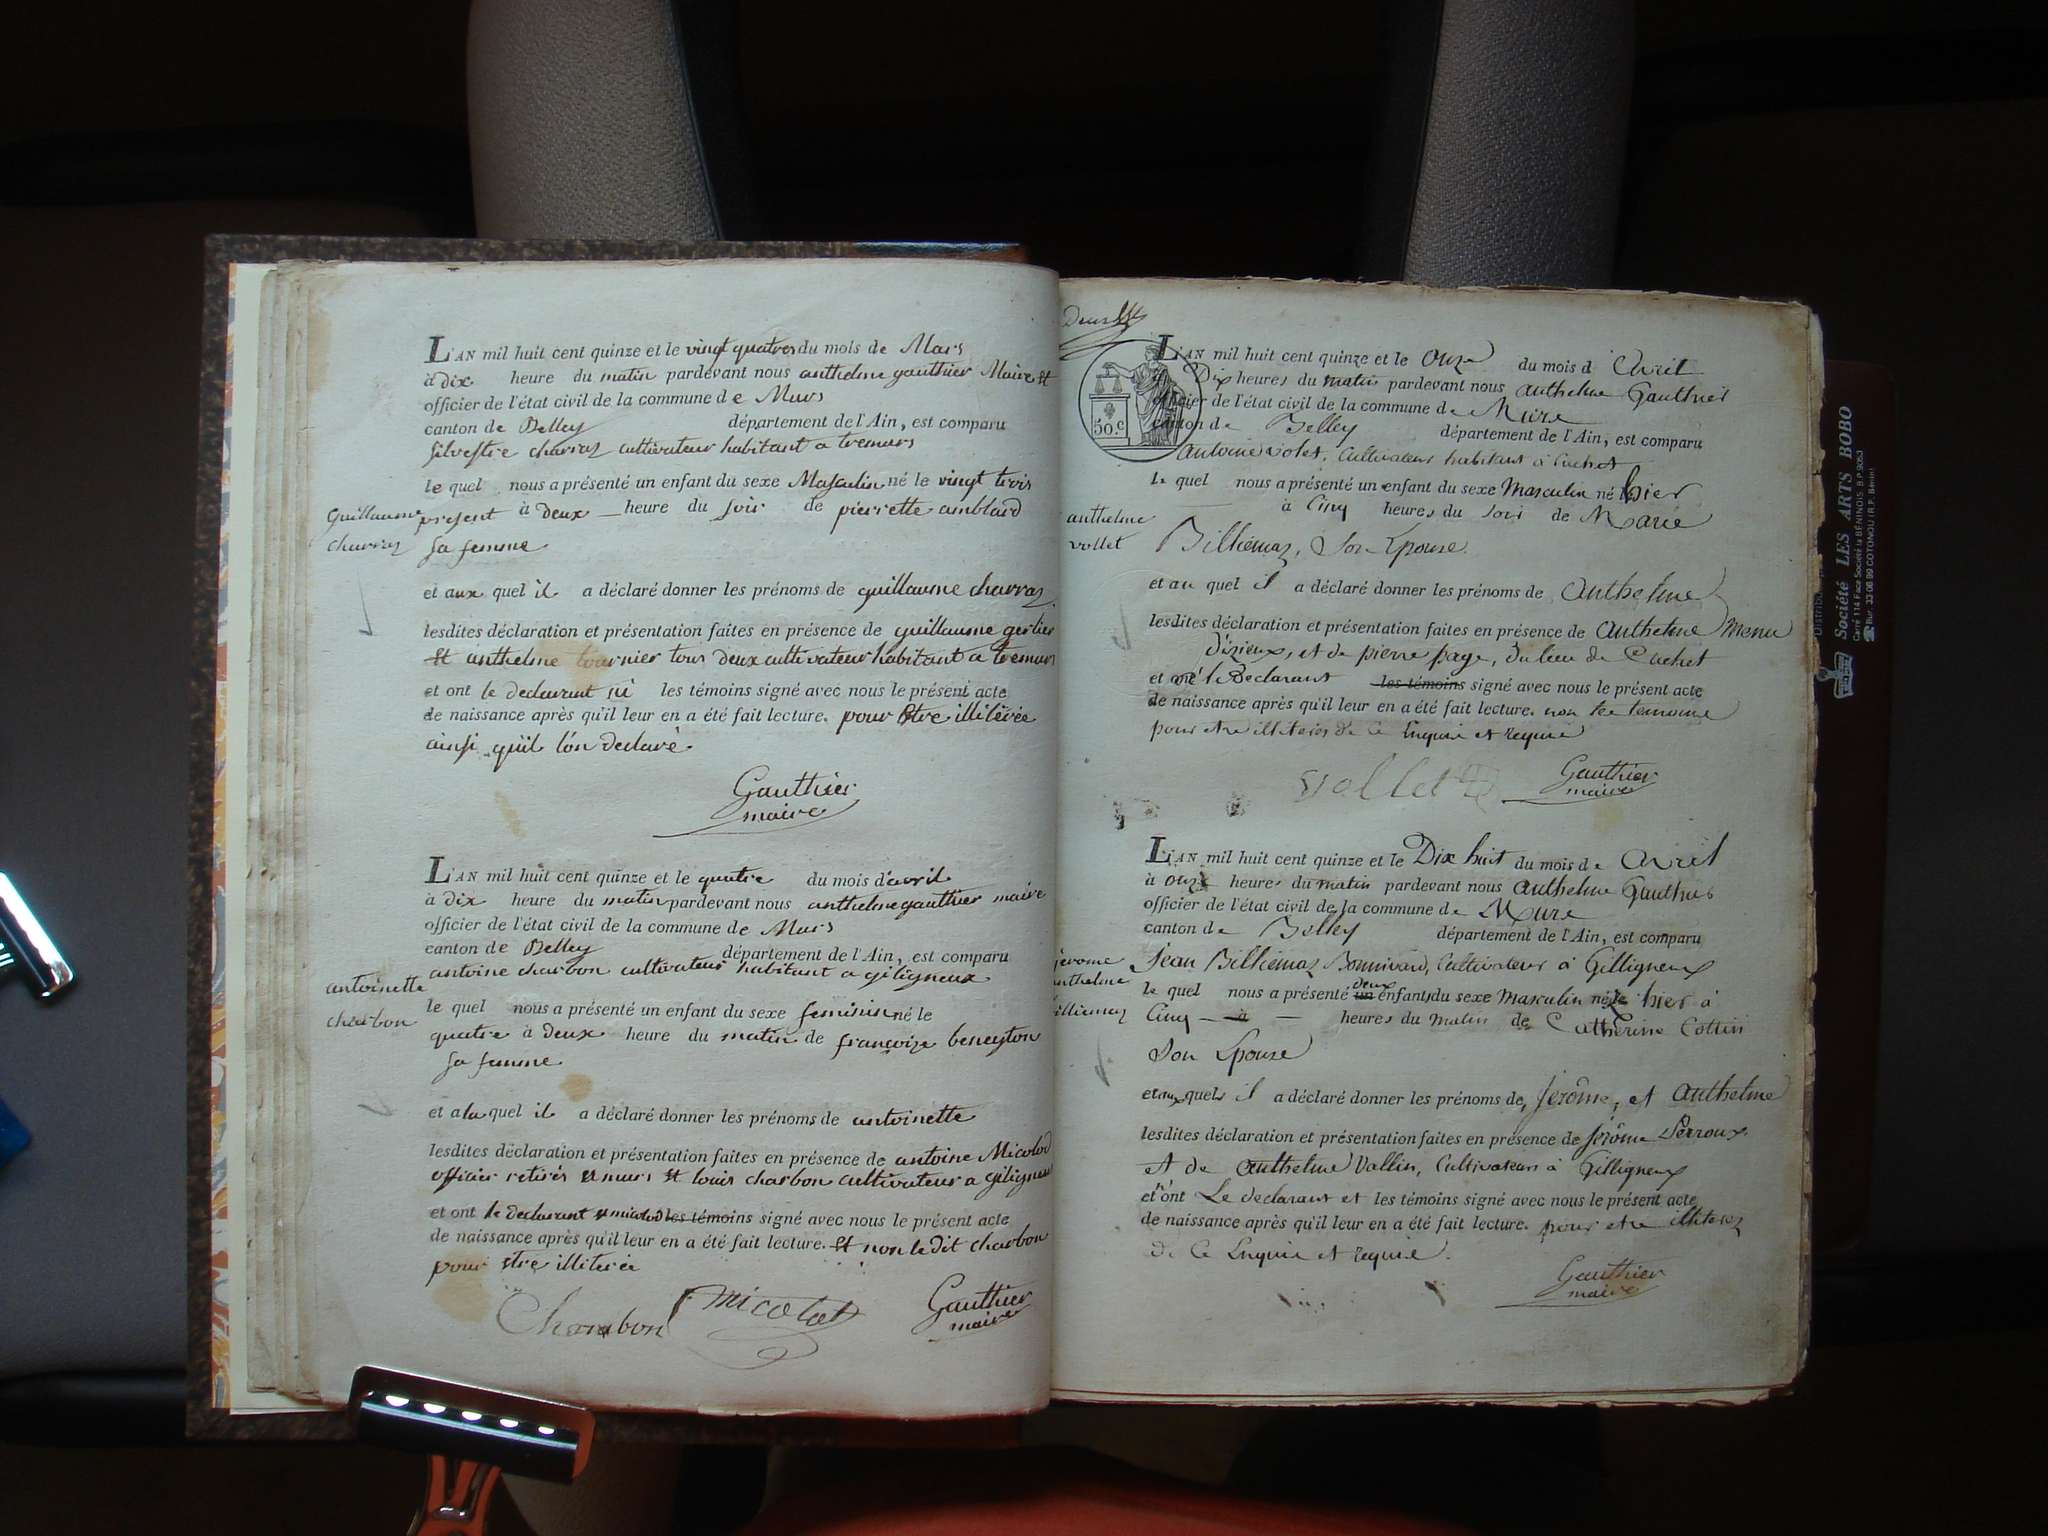 L'AN mil huit cent quinze et le vingt quatres du mois de Mars
à dix heure du matin pardevant nous anthelme gauthier Maire et
officier de l'état civil de la commune de Murs
canton de Belley département de l'Ain, est comparu
Silvestre charvas cultivateur habitant a tremurs
le quel nous a présenté un enfant du sexe Masculin né le vingt trois
Guillaume
charvas
present à deux heure du soir de pierrette amblard
sa femme
et aux quel il a déclaré donner les prénoms de guillaume charvas
lesdites déclaration et présentation faites en présence de guillaume gerlier
Et anthelme tournier tous deux cultivateur habitant a tremurs
et ont le declarant ni les témoins signé avec nous le présent acte
de naissance après qu'il leur en a été fait lecture. pour Etre illitérée
ainsi qu'il l'on declaré
Gauthier
maire
L'AN mil huit cent quinze et le quatre du mois d'avril
à dix heure du matin pardevant nous anthelme gauthier maire
officier de l'état civil de la commune de Murs
canton de Belley département de l'Ain, est comparu
antoine charbon cultivateur habitant a giligneux
antoinette
charbon
le quel nous a présenté un enfant du sexe feminin né le
quatre à deux heure du matin de françoize beneyton
sa femme
et a la quel il a déclaré donner les prénoms de antoinette
lesdites déclaration et présentation faites en présence de antoine Micolod
officier retirés a murs Et louis charbon cultivateur a giligneux
et ont le declarant & micolod les témoins signé avec nous le présent acte
de naissance après qu'il leur en a été fait lecture. Et non le dit charbon
pour etre illiterée
Charbon Micolod Gauthier
maire
L'AN mil huit cent quinze et le Onze du mois d'Avril
à Dix heures du matin pardevant nous Anthelme Gauthier
officier de l'état civil de la commune de Mure
50.c
canton de Belley département de l'Ain, est comparu
Antoine Volet, Cultivateur habitant à Cuchet
le quel nous a présenté un enfant du sexe Masculin né hier
anthelme
vollet
à Cinq heures du soir de Marie
Billiemaz, Son Epouse.
et au quel il a déclaré donner les prénoms de Anthelme
lesdites déclaration et présentation faites en présence de Anthelme Menu
d'izieux, et de pierre page, du lieu de Cuchet
et ont le Déclarant les témoins signé avec nous le présent acte
de naissance après qu'il leur en a été fait lecture. non les temoins
pour etre illiteres de ce Enquis et requis
vollet Gauthier
maire
L'AN mil huit cent quinze et le Dix huit du mois de Avril
à onze heures du matin pardevant nous Anthelme Gauthier
officier de l'état civil de la commune de Mure
canton de Belley département de l'Ain, est comparu
Jean Billiemaz Bonnivard, Cultivateur à Gilligneux
jerome
anthelme
billiemaz
le quel nous a présenté un deux enfants du sexe Masculin né le hier à
Cinq à heures du matin de Catherine Cottin
Son Epouse
et aux quels il a déclaré donner les prénoms de, Jérôme, et Anthelme
lesdites déclaration et présentation faites en présence de Jérôme Perroux
et de Anthelme Vallin, Cultivateurs à Gilligneux
et n'ont Le declarant et les témoins signé avec nous le présent acte
de naissance après qu'il leur en a été fait lecture. pour etre illiterez
de Ce Enquis et requis.
Gauthier
maire
Société LES ARTS BOBO
Carré 114 Face Société la BÉNINOIS B.P. 9053
Bur. 33 06 99 COTONOU (R.P. Bénin)